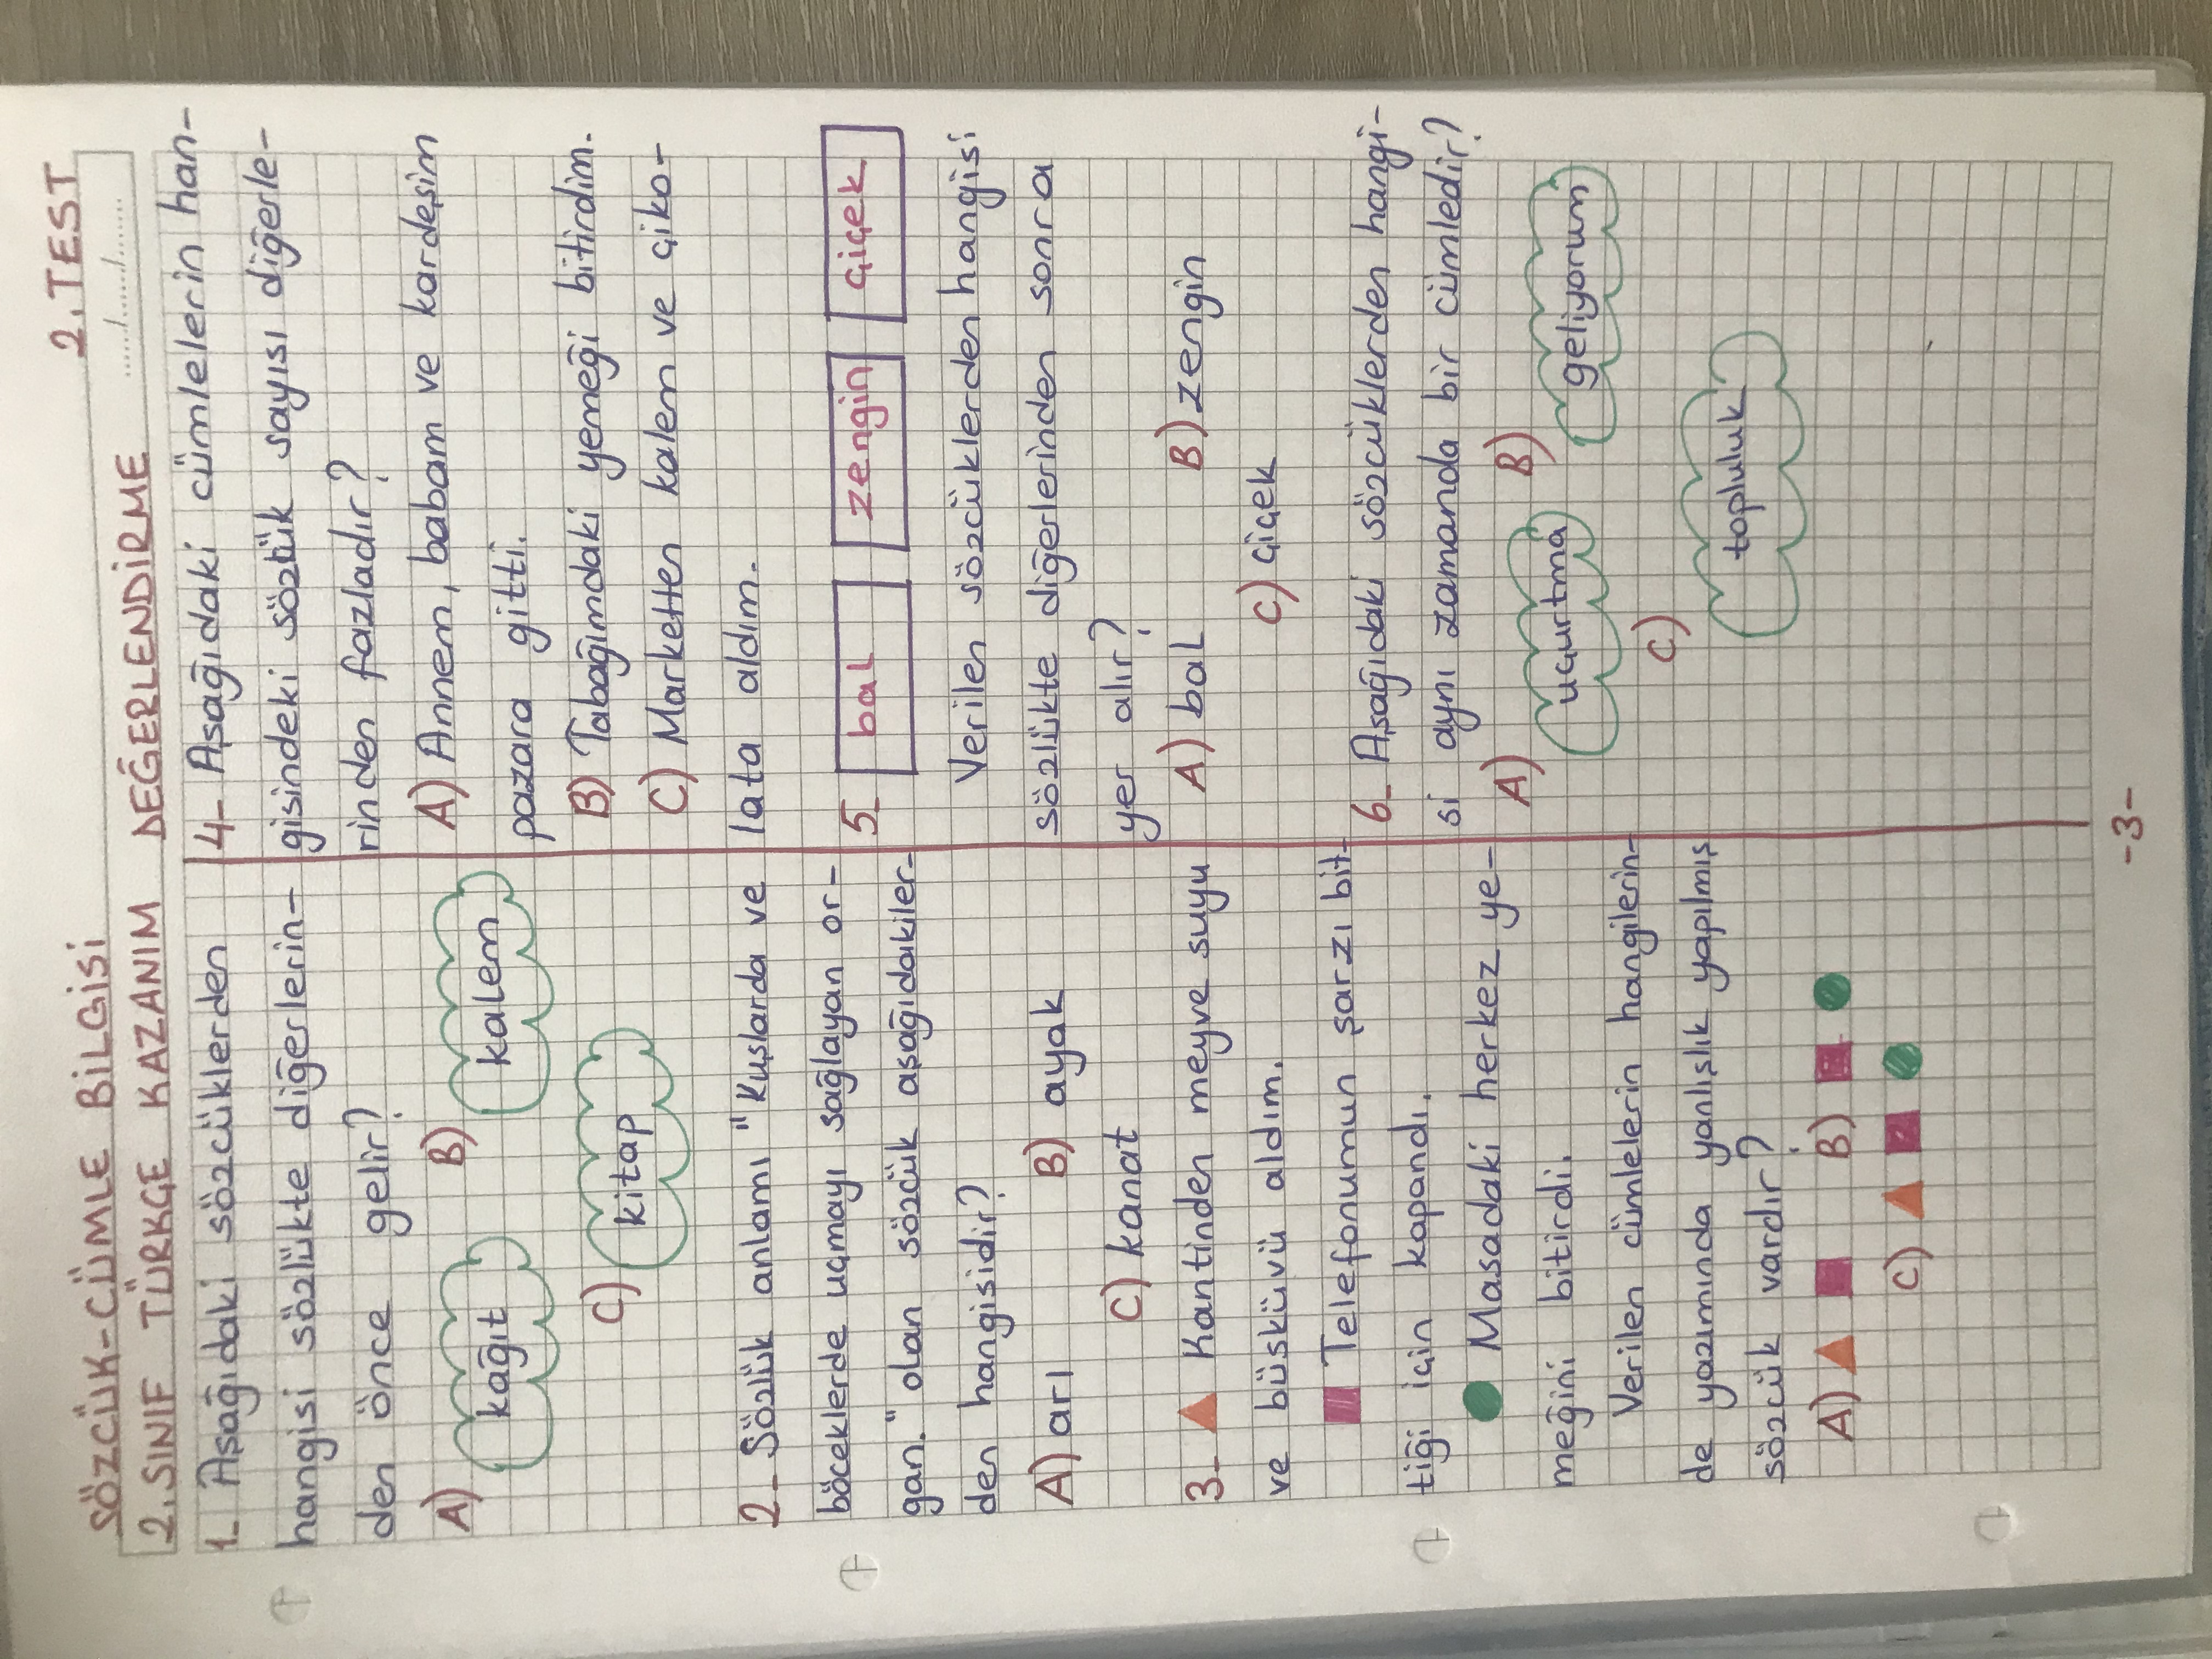 SÖZCÜK-CÜMLE BİLGİSİ
2. TEST
2. SINIF TÜRKÇE KAZANIM DEĞERLENDİRME ...../...../.......
1- Aşağıdaki sözcüklerden
hangisi sözlükte diğerlerin-
den önce gelir?
A) kağıt B) kalem
C) kitap
2- Sözlük anlamı "Kuşlarda ve
böceklerde uçmayı sağlayan or-
gan." olan sözcük aşağıdakiler-
den hangisidir?
A) arı B) ayak
C) kanat
3- ▲ Kantinden meyve suyu
ve büsküvü aldım.
■ Telefonumun şarzı bit-
tiği için kapandı.
● Masadaki herkez ye-
meğini bitirdi.
Verilen cümlelerin hangilerin-
de yazımında yanlışlık yapılmış
sözcük vardır?
A) ▲ ■ B) ■ ●
C) ▲ ■ ●
4- Aşağıdaki cümlelerin han-
gisindeki sözlük sayısı diğerle-
rinden fazladır?
A) Annem, babam ve kardeşim
pazara gitti.
B) Tabağımdaki yemeği bitirdim.
C) Marketten kalem ve çiko-
lata aldım.
5- bal zengin çiçek
Verilen sözcüklerden hangisi
sözlükte diğerlerinden sonra
yer alır?
A) bal B) zengin
C) çiçek
6- Aşağıdaki sözcüklerden hangi-
si aynı zamanda bir cümledir?
A) uçurtma B) geliyorum
C) topluluk
-3-